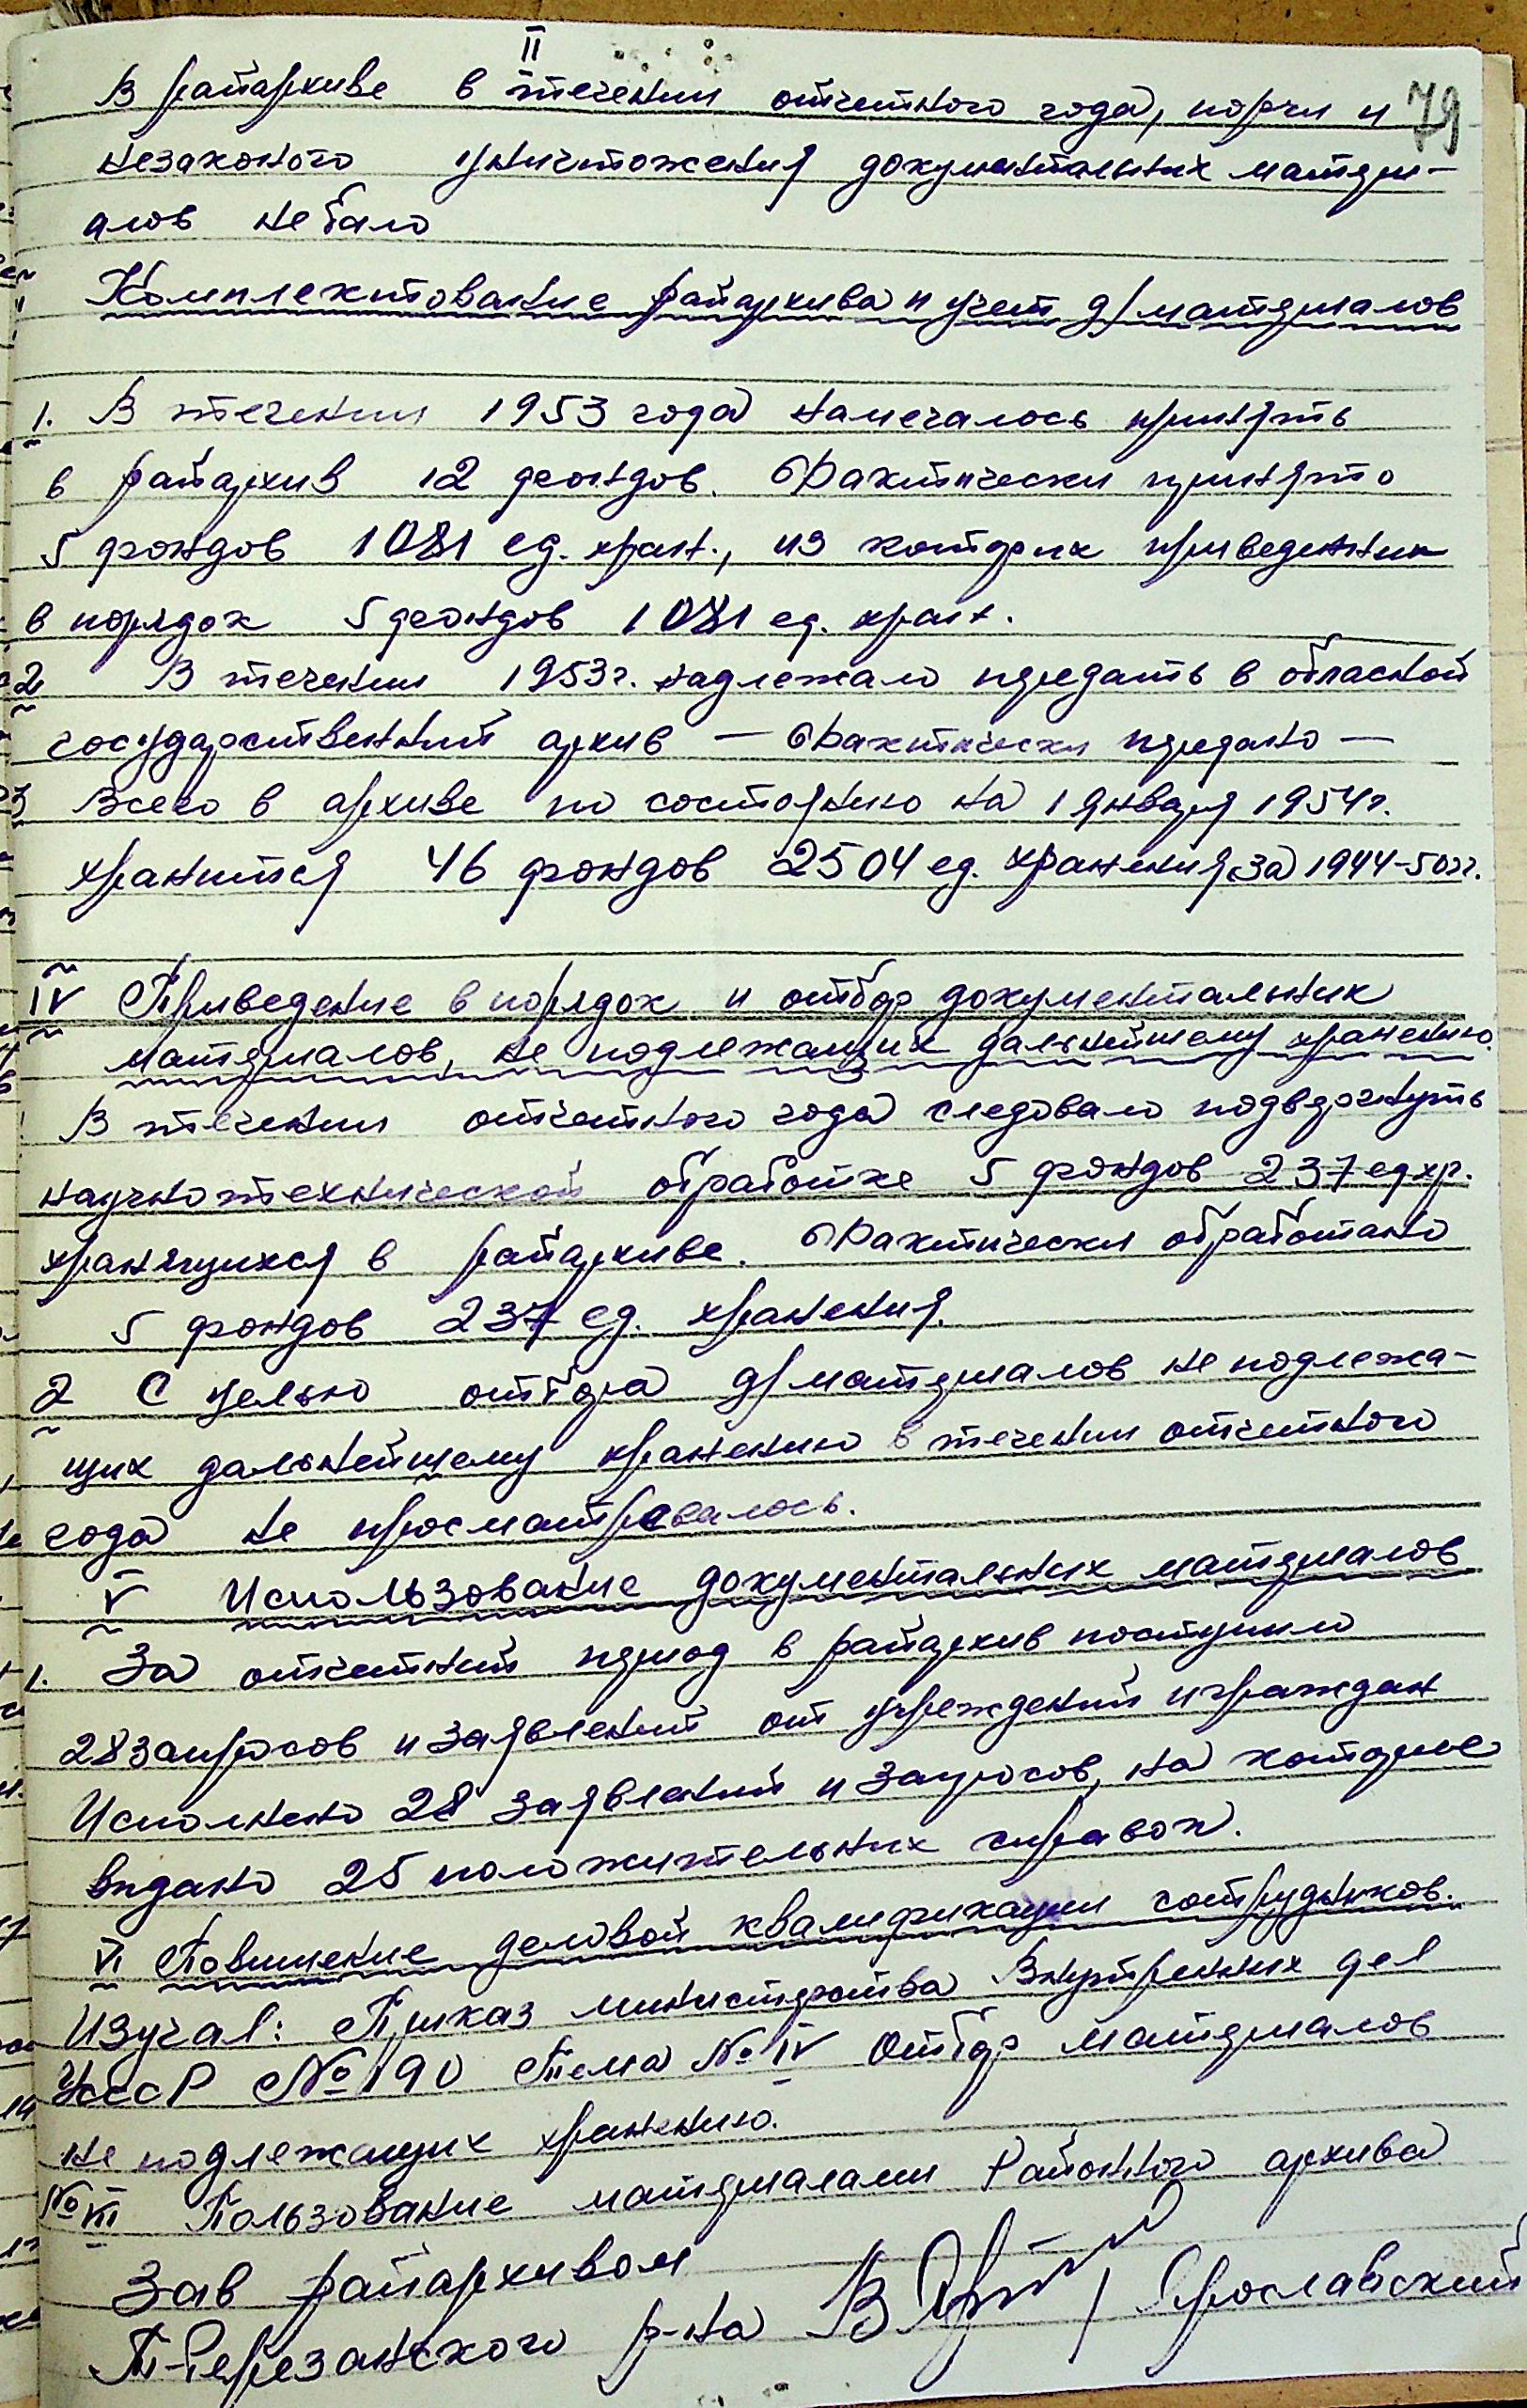 II
79
В райархиве в течении отчетного года, порчи и
незаконого уничтожения документальных матери-
алов не было
Комплектование райархива и учет д/материалов
1. В течении 1953 года намечалось принять
в райархив 12 фондов. Фактически принято
5 фондов 1081 ед. хран., из которых приведенны
в порядок 5 фондов 1081 ед. хран.
2 В течении 1953 г. надлежало передать в обласной
государственный архив — Фактически передано —
3 Всего в архиве по состоянию на 1 января 1954 г.
хранится 46 фондов 2504 ед. хранения за 1944-50 гг.
IV Приведение в порядок и отбор документальных
материалов, не подлежащих дальнейшему хранению.
В течении отчетного года следовало подвергнуть
научнотехнической обработке 5 фондов 237 ед хр.
хранящихся в райархиве. Фактически обработано
5 фондов 237 ед. хранения.
2 С целью отбора д/материалов не подлежа-
щих дальнейшему хранению в течении отчетного
года не просматривалось.
V Использование документальных материалов
1. За отчетный период в райархив поступило
28 запросов и заявлений от учреждений и граждан
Исполнено 28 заявлений и запросов, на которые
выдано 25 положительных справок.
VI Повышение деловой квалификации сотрудников.
Изучал: Приказ министерства Внутренних дел
УССР № 190 Тема № IV Отбор материалов
не подлежащих хранению.
№ VI Пользование материалами Районного архива
Зав райархивом
Т-Березанского р-на В Яр / Ярославский